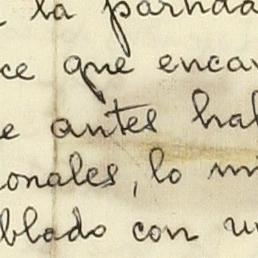 la partida
ce que encar
e antes hab
onales, lo mi
blado con un